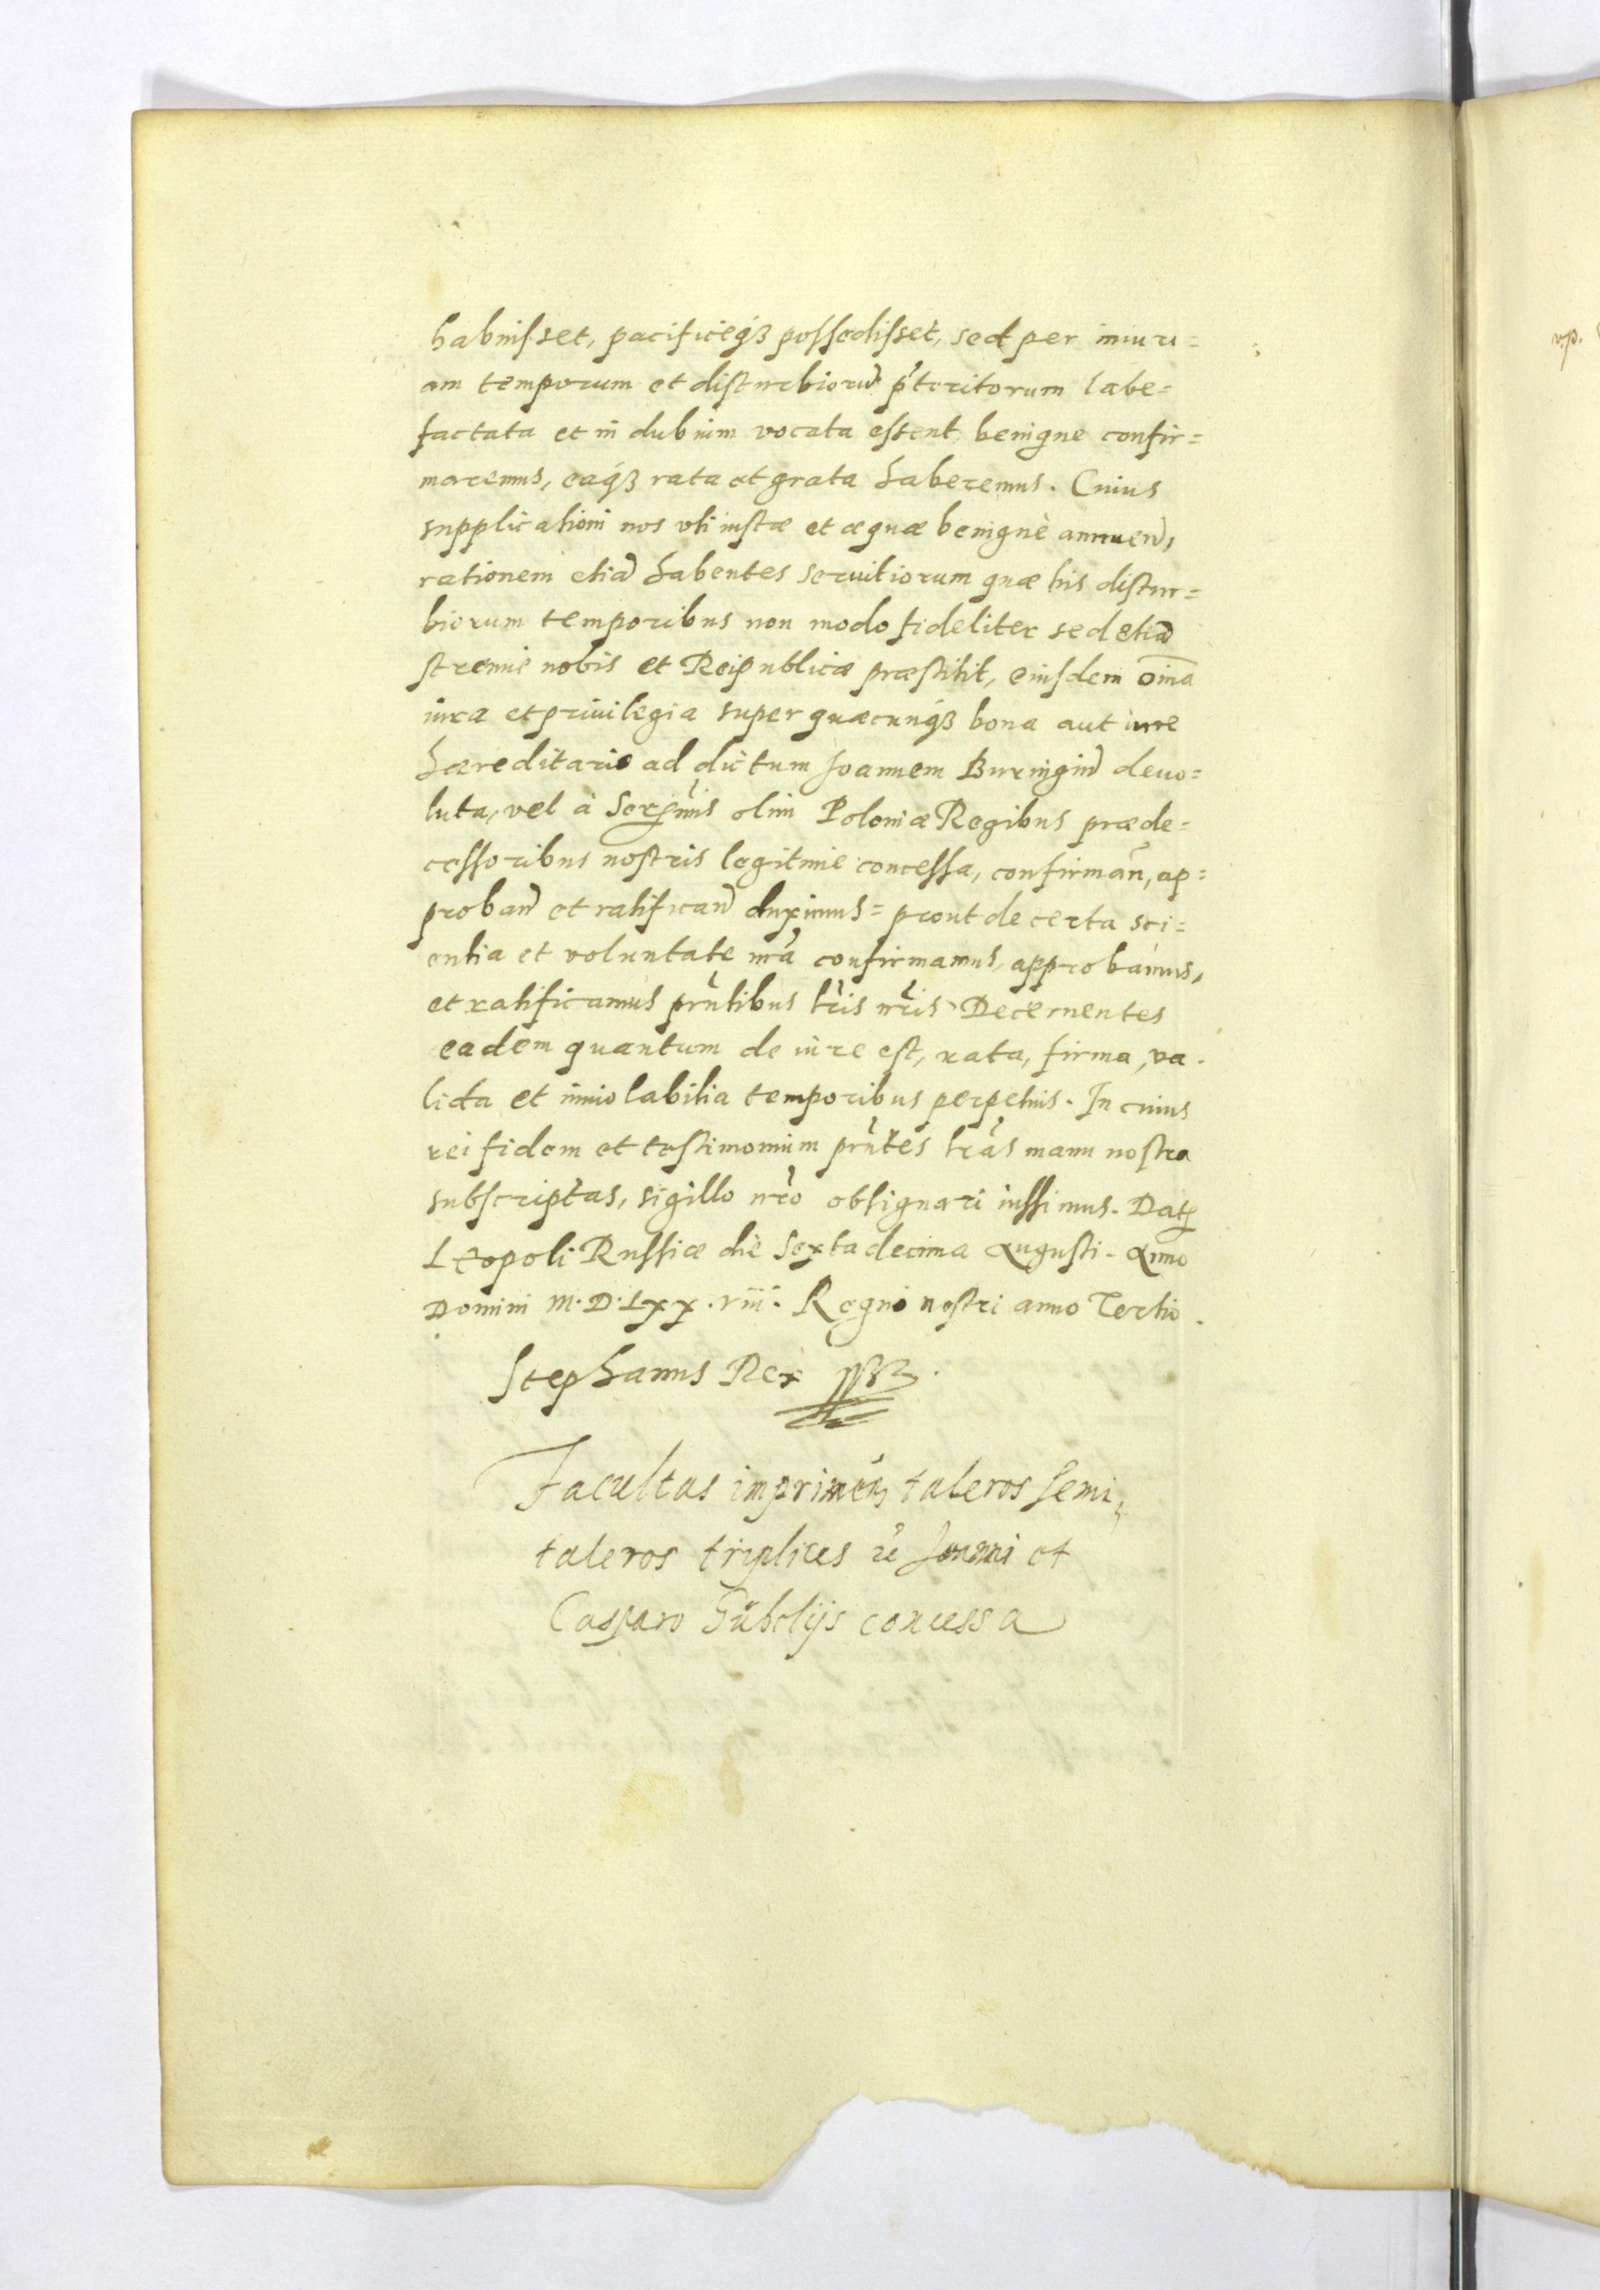 habuisset, pacificeqꝫ possedisset, sed per iniuri=
am temporum et disturbiorũ p̃teritorum labe=
factata et in dubium vocata essent, benigne confir=
maremus, eaqꝫ rata et grata haberemus. Cuius
supplicationi nos vti iustæ et æquæ benignè annuen̄,
rationem etiã habentes seruitiorum quæ his distur=
biorum temporibus non modo fideliter sed etiã
strenue nobis et Reipublicæ præstitit, eiusdem oīa
iura et priuilegia super quæcunqꝫ bona aut iure
hæreditario ad dictum Joannem Buringiũ deuo=
luta, vel à Serᵐis olim Poloniæ Regibus præde=
cessoribus nostris legitime concessa, confirman̄, ap=
proban̄ et ratifican̄ duximus= prout de certa sci=
entia et voluntate nr̃a confirmamus, approbamus,
et ratificamus prñtibus lr̃is nr̃is. Decernentes
eadem quantum de iure est, rata, firma, va.
lida et inuiolabilia temporibus perpetuis. In cuius
rei fidem et testimonium prñtes lr̃as manu nostra
subscriptas, sigillo nr̃o obsignari iussimus. Datꝭ
Leopoli Russiæ die Sexta decima Augusti. Anno
Domini M.D.Lxx.viii. Regni nostri anno Tertio.
Stephanus Rex
Facultas imprimen̄ taleros semi,
taleros triplices Joanni et
Casparo Gübelijs concessa
vp.